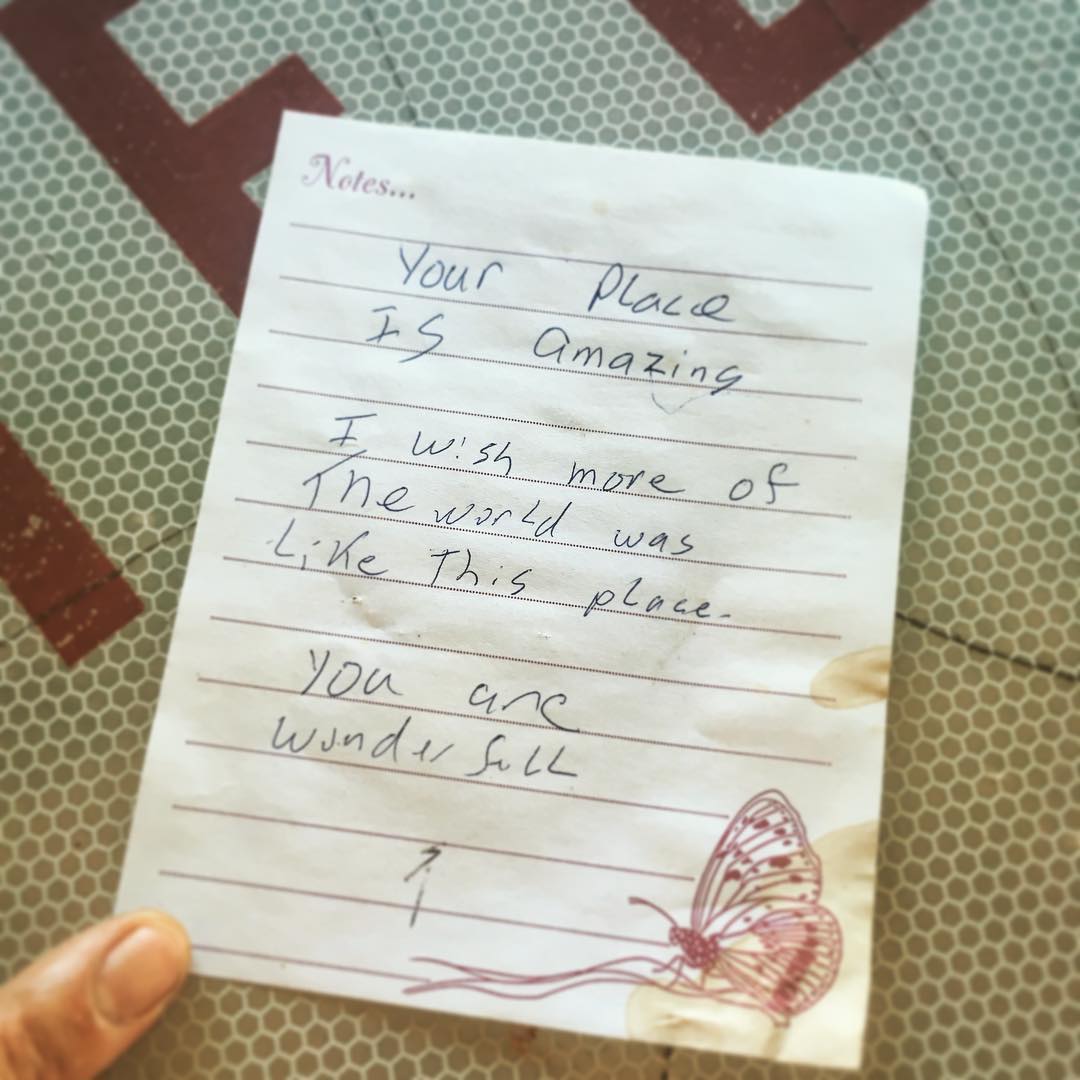 Notes...
Your Place
IS amazing
I wish more of
The world was
Like This place.
You are
wonderfull